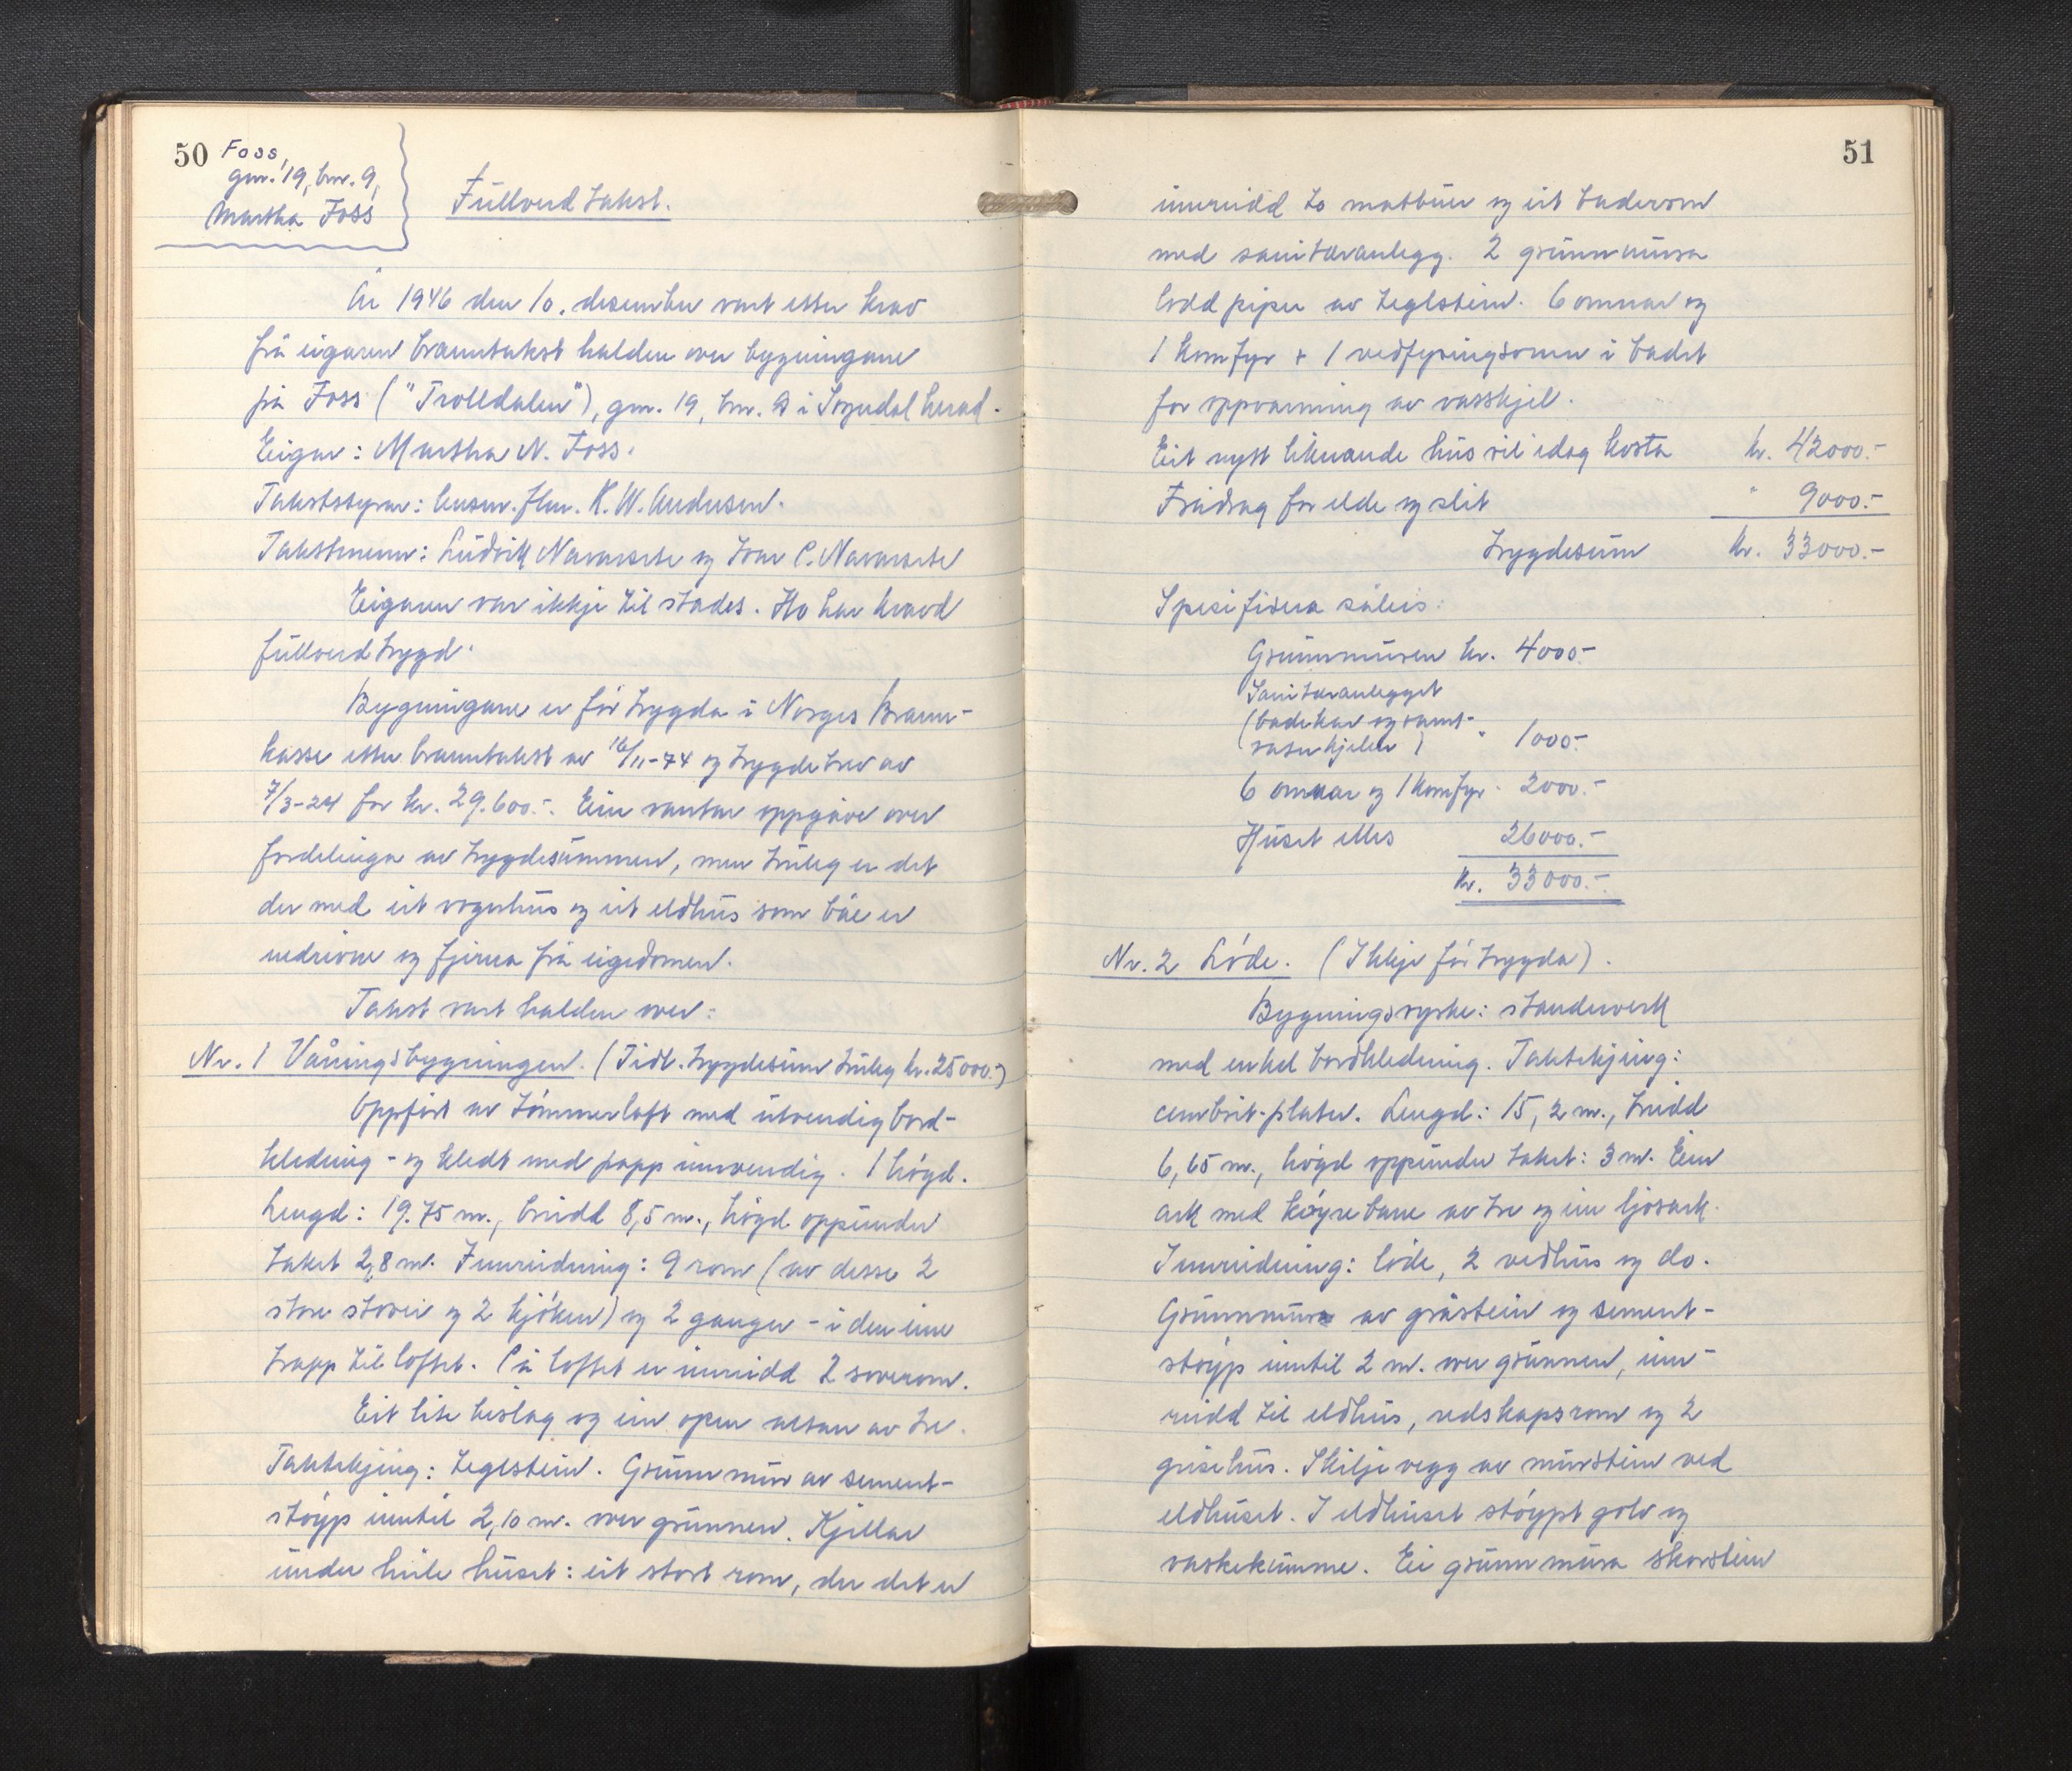 50
Foss,
gnr. 19, bnr. 9,
Martha Foss
Fullverdtakst.
År 1946 den 10. desember vart etter krav
frå eigaren branntakst halden over bygningane
på Foss ("Trolldalen"), gnr. 19, bnr. 9 i Sogndal herad.
Eigar: Martha N. Foss.
Takststyrar: lensm. flm. K. W. Andersen.
Takstmenn: Ludvik Navarsete og Ivar P. Navarsete
Eigaren var ikkje til stades. Ho har kravd
fullverdtrygd.
Bygningane er før trygda i Norges Brann-
kasse etter branntakst av 16/11-74 og trygdebrev av
7/3-24 for kr. 29.600.-. Ein vantar oppgåve over
fordelinga av trygdesummen, men truleg er det
der med eit vognhus og eit eldhus som båe er
nedrivne og fjerna frå eigedomen.
Takst vart halden over:
Nr. 1 Våningsbygningen. (Tidl. trygdesum truleg kr. 25000.-)
Oppført av tømmerlaft med utvendig bord-
kledning - og kledt med papp innvendig. 1 høgd.
Lengd: 19.75 m., breidd 8,5 m., høgd oppunder
taket 2,8 m. Innreidning: 9 rom (av desse 2
store stover og 2 kjøken) og 2 ganger - i den eine
trapp til loftet. På loftet er innreidd 2 soverom.
Eit lite bislag og ein open altan av tre.
Taktekjing: teglstein. Grunnmur av sement-
støyp inntil 2,10 m. over grunnen. Kjellar
under heile huset: eit stort rom, der det er
51
innreidd to matbuer og eit baderom
med sanitæranlegg. 2 grunnmura
lodd piper av teglstein. 6 omnar og
1 komfyr + 1 vedfyringsomn i badet
for oppvarming av vasskjel.
Eit nytt liknande hus vil idag kosta kr. 42000.-
Frådrag for elde og slit " 9000.-
trygdesum kr. 33000.-
Spesifisera såleis:
Grunnmuren kr. 4000.-
Sanitæranlegget
(badekar og varmt-
vasskjelen) " 1000.-
6 omnar og 1 komfyr " 2000.-
Huset elles 26000.-
kr. 33000.-
Nr. 2 Løde. (Ikkje før trygda).
Bygningsmåte: standerverk
med enkel bordkledning. Taktekjing:
cembrit-plater. Lengd: 15,2 m., breidd
6,65 m., høgd oppunder taket: 3 m. Ein
ark med køyrebane av tre og ein ljosark.
Innreidning: løde, 2 vedhus og do.
Grunnmur av gråstein og sement-
støyp inntil 2 m. over grunnen, inn-
reidd til eldhus, redskapsrom og 2
grisehus. Skiljevegg av murstein ved
eldhuset. I eldhuset støypt golv og
vaskekumme. Ei grunnmura skorstein